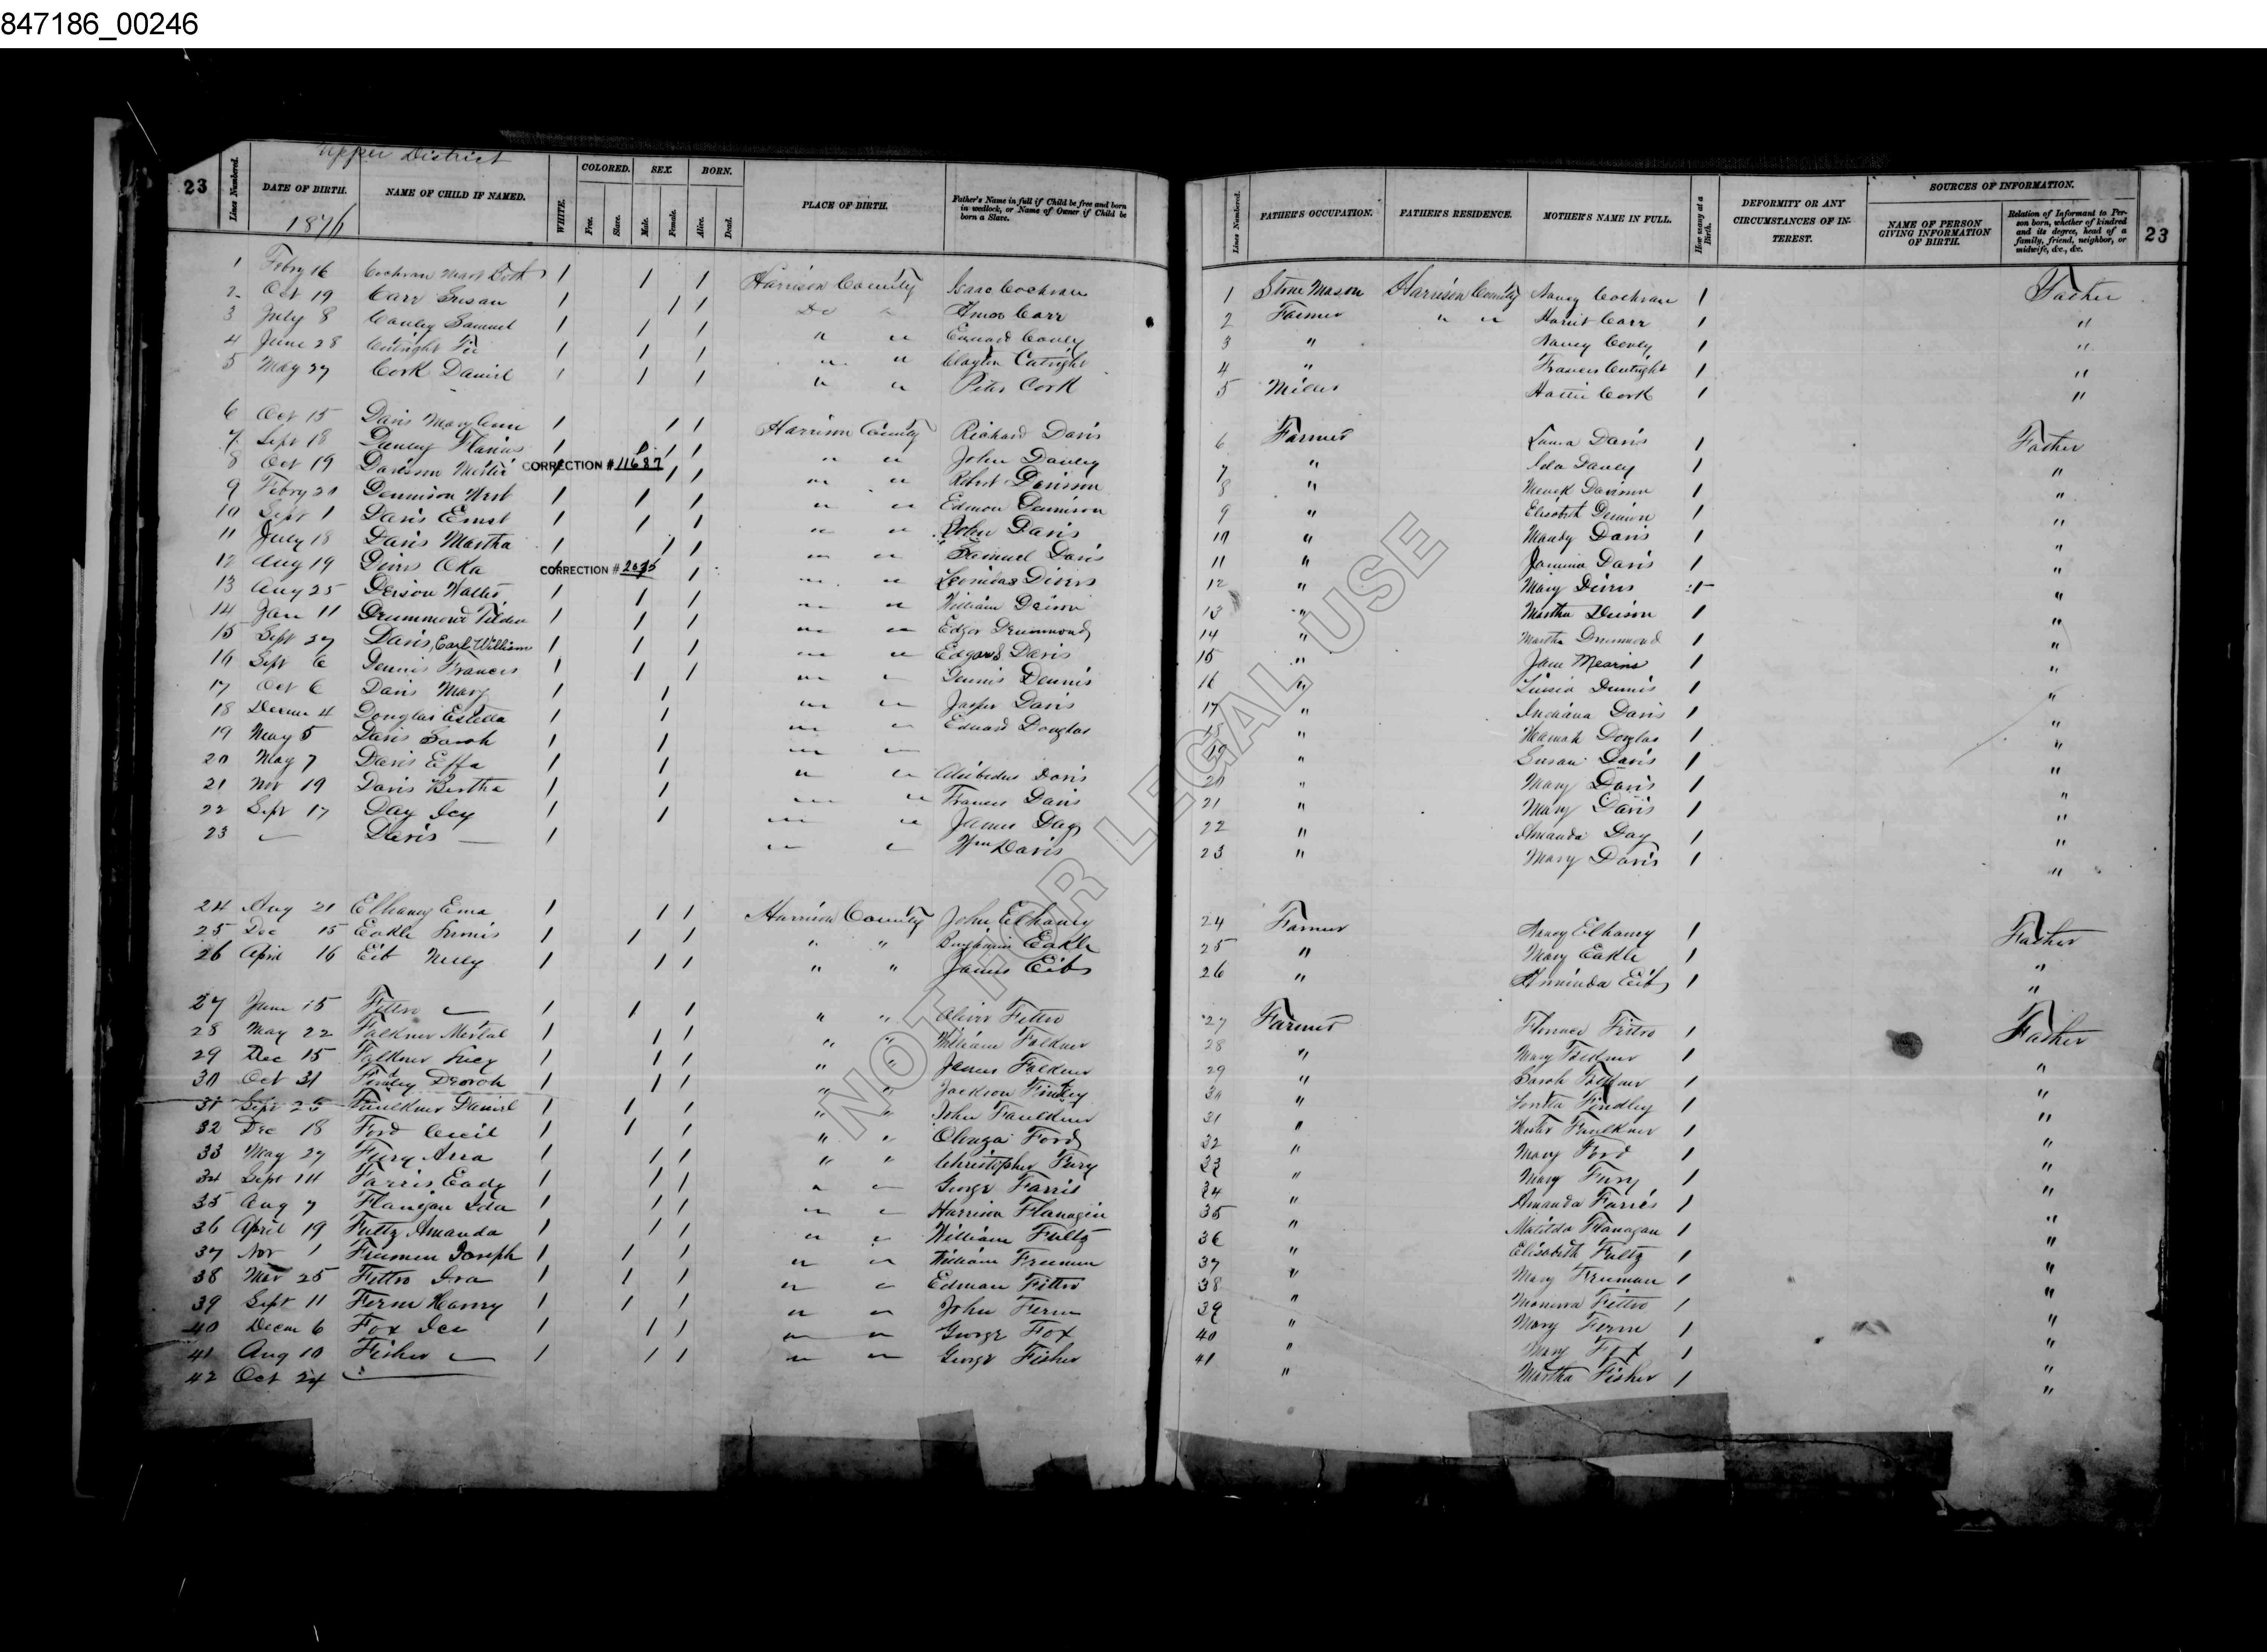 847186_00246
Upper District
23
Lines Numbered.
DATE OF BIRTH.
1876
NAME OF CHILD IF NAMED.
WHITE.
COLORED.
Free.
Slave.
SEX.
Male.
Female.
BORN.
Alive.
Dead.
PLACE OF BIRTH.
Father's Name in full if Child be free and born in wedlock, or Name of Owner if Child be born a Slave.
1 Febry 16 Cochran Mary 1 1 1 Harrison County Isaac Cochran
2 Oct 19 Carr Susan 1 1 1 Do " Amos Carr
3 July 8 Conley Samuel 1 1 1 " " Edward Conley
4 June 28 Cutright 1 1 1 " " Clayton Cutright
5 May 27 Cork Daniel 1 1 1 " " Peter Cork
6 Oct 15 Davis Mary Ann 1 1 1 Harrison County Richard Davis
7 Sept 18 Danley 1 1 1 " " John Danley
8 Oct 19 Davisson CORRECTION # 11687 1 1 " " Robert Davisson
9 Febry 20 Dennison West 1 1 1 " " Edmon Dennison
10 Sept 1 Davis Ernst 1 1 1 " " John Davis
11 July 18 Davis Martha 1 1 1 " " Samuel Davis
12 Aug 19 Divers Oka CORRECTION # 1 " " Leonidas Divers
13 Aug 25 Deison Walter 1 1 1 " " William Deison
14 Jan 11 Drummond Tilden 1 1 1 " " Edgar Drummond
15 Sept 27 Davis, Earl William 1 1 1 " " Edgar S. Davis
16 Sept 6 Dennis Frances 1 1 1 " " Dennis Dennis
17 Oct 6 Davis Mary 1 1 " " Jasper Davis
18 Decem 4 Douglas Estella 1 1 " " Edward Douglas
19 May 5 Davis Sarah 1 1 " "
20 May 7 Davis Effa 1 1 " " Davis
21 Nov 19 Davis Bertha 1 1 " " Frances Davis
22 Sept 17 Day Icy 1 1 " " James Day
23 Davis 1 " " Wm Davis
24 Aug 21 Elhaney Ema 1 1 1 Harrison County John Elhaney
25 Dec 15 Eakle 1 1 1 " " Benjamin Eakle
26 April 16 Eib Nelly 1 1 1 " " James Eib
27 June 15 Fittro 1 1 1 " " Oliver Fittro
28 May 22 Falkner Mertal 1 1 1 " " William Falkner
29 Dec 15 Falkner Lucy 1 1 1 " " James Falkner
30 Oct 31 Findley Deorah 1 1 1 " " Jackson Findley
31 Sept 25 Faulkner Daniel 1 1 1 " " John Faulkner
32 Dec 18 Ford Cecil 1 1 1 " " Olonza Ford
33 May 27 Fury Arra 1 1 1 " " Christopher Fury
34 Sept 14 Farris Eady 1 1 1 " " George Farris
35 Aug 7 Flanigan Ida 1 1 1 " " Harrison Flanagin
36 April 19 Fultz Amanda 1 1 1 " " William Fultz
37 Nov 1 Freemen Joseph 1 1 1 " " William Freeman
38 Mar 25 Fittro Ira 1 1 1 " " Edman Fittro
39 Sept 11 Ferm Harry 1 1 1 " " John Ferm
40 Decem 6 Fox Ice 1 1 1 " " George Fox
41 Aug 10 Fisher 1 1 1 " " George Fisher
42 Oct 24
Lines Numbered.
FATHER'S OCCUPATION.
FATHER'S RESIDENCE.
MOTHER'S NAME IN FULL.
How many at a Birth.
DEFORMITY OR ANY CIRCUMSTANCES OF INTEREST.
SOURCES OF INFORMATION.
NAME OF PERSON GIVING INFORMATION OF BIRTH.
Relation of Informant to Person born, whether of kindred and its degree, head of a family, friend, neighbor, or midwife, &c., &c.
23
1 Stone Mason Harrison County Nancy Cochran 1 Father
2 Farmer " " Harriet Carr 1 "
3 " Nancy Conley 1 "
4 " Frances Cutright 1 "
5 Miller Hattie Cork 1 "
6 Farmer Laura Davis 1 Father
7 " Ida Danley 1 "
8 " Davisson 1 "
9 " Elisabeth Dennison 1 "
10 " Mandy Davis 1 "
11 " Jamima Davis 1 "
12 " Mary Divers 1 "
13 " Martha Deison 1 "
14 " Martha Drummond 1 "
15 " Jane Mearns 1 "
16 " Dennis 1 "
17 " Indiana Davis 1 "
18 " Hannah Douglas 1 "
19 " Susan Davis 1 "
20 " Mary Davis 1 "
21 " Mary Davis 1 "
22 " Amanda Day 1 "
23 " Mary Davis 1 "
24 Farmer Nancy Elhaney 1 Father
25 " Mary Eakle 1 "
26 " Arminda Eib 1 "
27 Farmer Florence Fittro 1 Father
28 " Mary Falkner 1 "
29 " Sarah Falkner 1 "
30 " Loretta Findley 1 "
31 " Hester Faulkner 1 "
32 " Mary Ford 1 "
33 " Mary Fury 1 "
34 " Amanda Farris 1 "
35 " Matilda Flanagan 1 "
36 " Elisabeth Fultz 1 "
37 " Mary Freeman 1 "
38 " Manerva Fittro 1 "
39 " Mary Ferm 1 "
40 " Mary Fox 1 "
41 " Martha Fisher 1 "
NOT FOR LEGAL USE